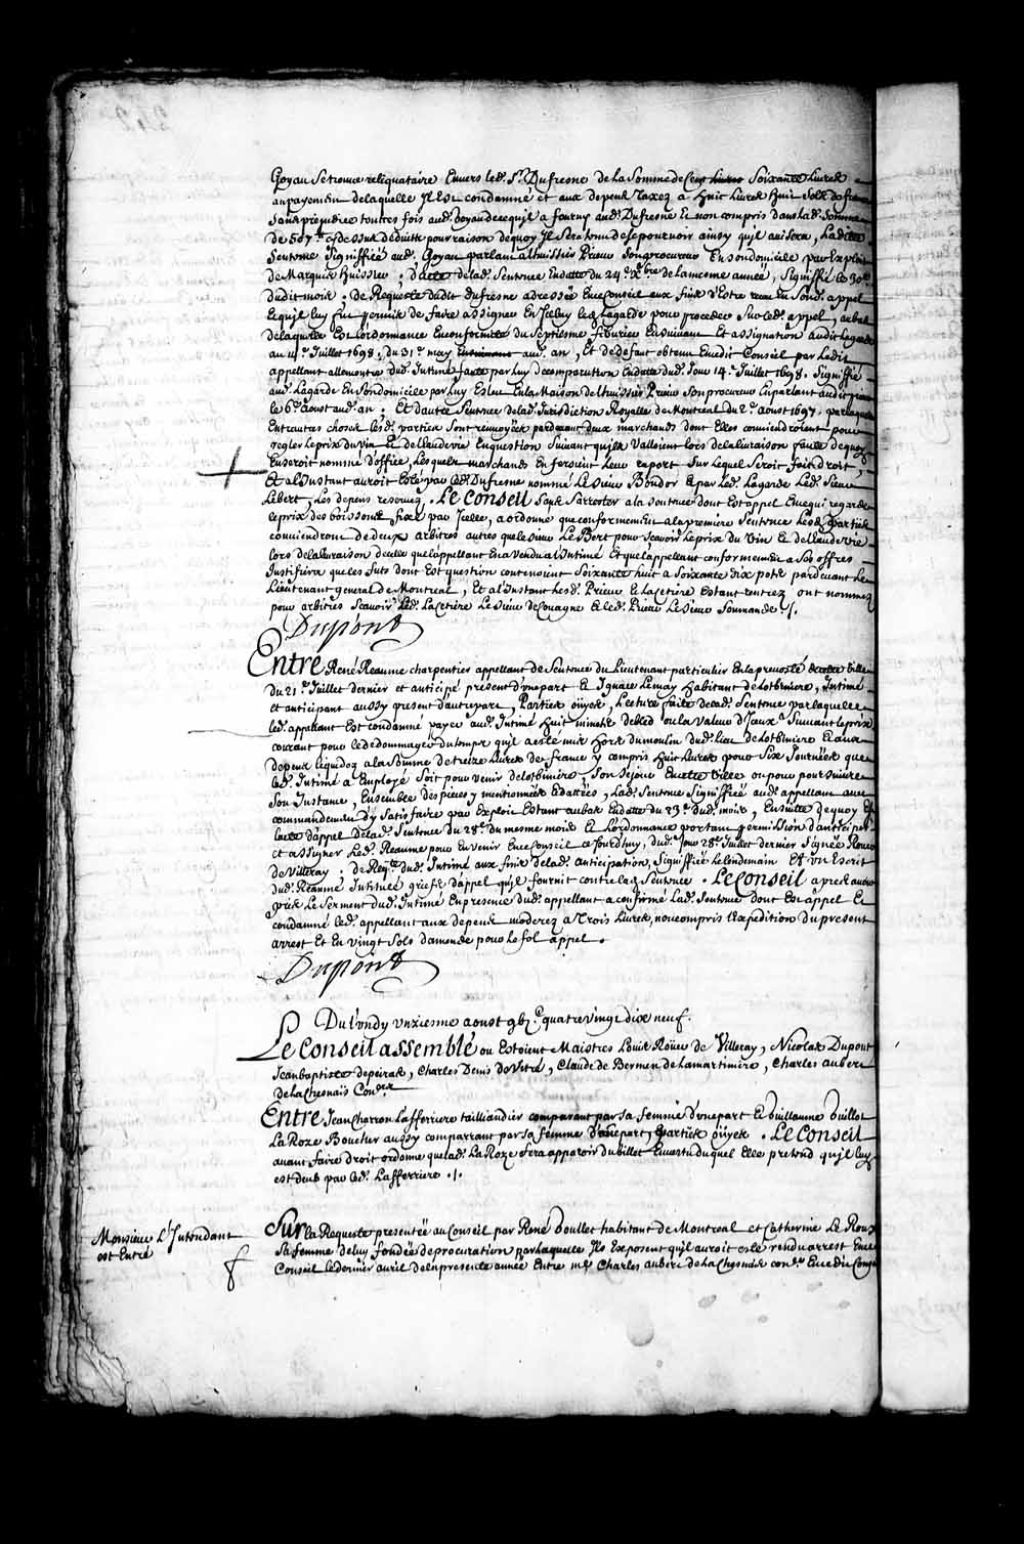 Goyau Se trouve reliquataire Envers led. Sr. Dufresne de la Somme de Cent Livres Soixante Livres
au payement de laquelle Il Est condamné et aux depens Taxez a Huit Livres Huit Sols
Sans prejudice toutes fois aud. Goyau de ce qu'il a fourny aud. Dufresne Et non compris dans lad. Somme
de 507.lt cy dessus deduitte pour raison de quoy Il Sera tenu de se pourvoir ainsy qu'il avisera, Ladite
Sentence Signiffiée aud. Goyau parlant a Prieur Son procureur En son domicile par Exploit
de Marquis Huissier ; de lad. Sentence En datte du 29.e xbre de la mesme année, Signiffié le 30.e
dudit mois ; de Requeste dudit Dufresne adressée En ce Conseil aux fins d'Estre receu En Son d. appel
Et qu'il luy fut permis de faire assigner En Iceluy led. Lagarde pour proceder Sur led. appel, au bas
de laquelle Est L'ordonnance En conformité du Septiesme febvrier En suivant Et assignation audit Lagarde
au 14.e Juillet 1698. du 31.e may aud. an, Et de defaut obtenu En ced. Conseil par Ledit
appellant allencontre dud. Intimé faute par luy de comparution En datte dud. Jour 14.e Juillet 1698. Signiffié
aud. Lagarde En Son domicile par luy Eslu En la Maison de Prieur Son procureur En parlant
le 6.e aoust aud. an ; Et d'autre Sentence de lad. Jurisdiction Royalle de Montreal du 2.e aoust 1697. par laquelle
Entr'autres choses lesd. parties Sont renvoyées pardevant deux marchands dont Elles conviendroient pour
regler le prix du vin Et de l'Eau de vie En question Suivant qu'ils valloient lors de la livraison faute de quoy
En seroit nommé d'office, Lesquels marchands En feroient leur raport Sur lequel Seroit fait droit,
Et a l'Instant auroit Esté par led. Dufresne nommé Le Sieur Bondor Et par Led. Lagarde Led. Sieur
Lebert, Les depens reservez. Le Conseil Sans S'arrester a la sentence dont Est appel En ce qui regarde
le prix des boissons fixé par Icelle, a ordonné que conformement a la premiere Sentence Lesd. parties
conviendront de deux arbitres autres que le Sieur Le Bert pour Scavoir le prix du Vin Et de l'Eau de vie
lors de la livraison d'icelle que l'appellant En a vendu a l'Intimé Et que l'appellant conformement a Ses offres
Justifiera que les futs dont Est question contenoient Soixante huit a Soixante dix pots pardevant Le
Lieutenant general de Montreal, Et a l'Instant Lesd. Prieur Et La Cetiere Estant rentrez ont nommez
pour arbitres Scavoir Led. La Cetiere Le Sieur de Couagne Et led. Prieur Le Sieur Soumande ./.
Dupont
Entre René Reaume charpentier appellant de Sentence du Lieutenant particulier En la prevosté de cette Ville
du 21.e Juillet dernier et anticipé present d'une part Et Ignace Lemay Habitant de Lotbiniere, Intimé
et anticipant aussy present d'autre part, Parties ouyes, Lecture faite de lad. Sentence par laquelle
led. appellant Est condamné payer aud. Intimé Huit minots de bled ou la valeur d'Iceux Suivant le prix
courant pour le dedommager du temps qu'il a esté mis Hors du moulin dud. lieu de Lotbiniere Et aux
depens liquidez a la Somme de treize Livres de france y compris Huit Livres pour Six Journées que
led. Intimé a Employé Soit pour venir de Lotbiniere Son Sejour En cette Ville ou pour poursuivre
Son Instance, Ensemble des pieces y mentionnées Et dattées, Lad. Sentence Signiffiée aud. appellant avec
commandement d'y Satisfaire par Exploit Estant au bas En datte du 23.e dud. mois, En suitte de quoy Est
l'acte d'appel de lad. Sentence du 28.e du mesme mois Et L'ordonnance portant permission d'anticiper
et assigner Led. Reaume pour En venir En ce Conseil a ce Jourd'huy, dud. Jour 28.e Juillet dernier Signée Rouer
de Villeray. de Req.te dud. Intimé aux fins de lad. anticipation, Signiffiée le lendemain Et un Escrit
dud. Reaume Intitulé griefs d'appel qu'il fournit contre lad. Sentence. Le Conseil apres avoir
pris le Serment dud. Intimé En presence dud. appellant a confirmé lad. Sentence dont Est appel Et
condamné led. appellant aux depens moderez a Trois Livres, non compris l'Expedition du present
arrest Et En vingt Sols d'amende pour le fol appel.
Dupont
Du Lundy Unzieme aoust gbj.c quatre vingt dix neuf.
Le Conseil assemblé ou Estoient Maistres Louis Roüer de Villeray, Nicolas Dupont
Jean baptiste depeiras, Charles Denis de Vitré, Claude de Bermen de Lamartiniere, Charles aubert
de la Chesnais Con.ers
Entre Jean Charron Lafferriere taillandier comparant par sa femme d'une part Et Guillaume Guillot
La Roze Boucher aussy comparant par sa femme d'autre part, Parties oüyes. Le Conseil
avant faire droit ordonne que lad. La Roze fera apparoir du billet En vertu duquel Elle pretend qu'il luy
est deub par led. Lafferriere ./.
Monsieur L'Intendant
est Entré
Sur la Requeste presentée au Conseil par René Doullet habitant de Montreal et Catherine Le Roux
Sa femme de luy fondée de procuration par laquelle Ils Exposent qu'il auroit esté rendu arrest En ce
Conseil le dernier avril de la presente année Entre m.e Charles aubert de la Chesnais con.er En ced. Conseil